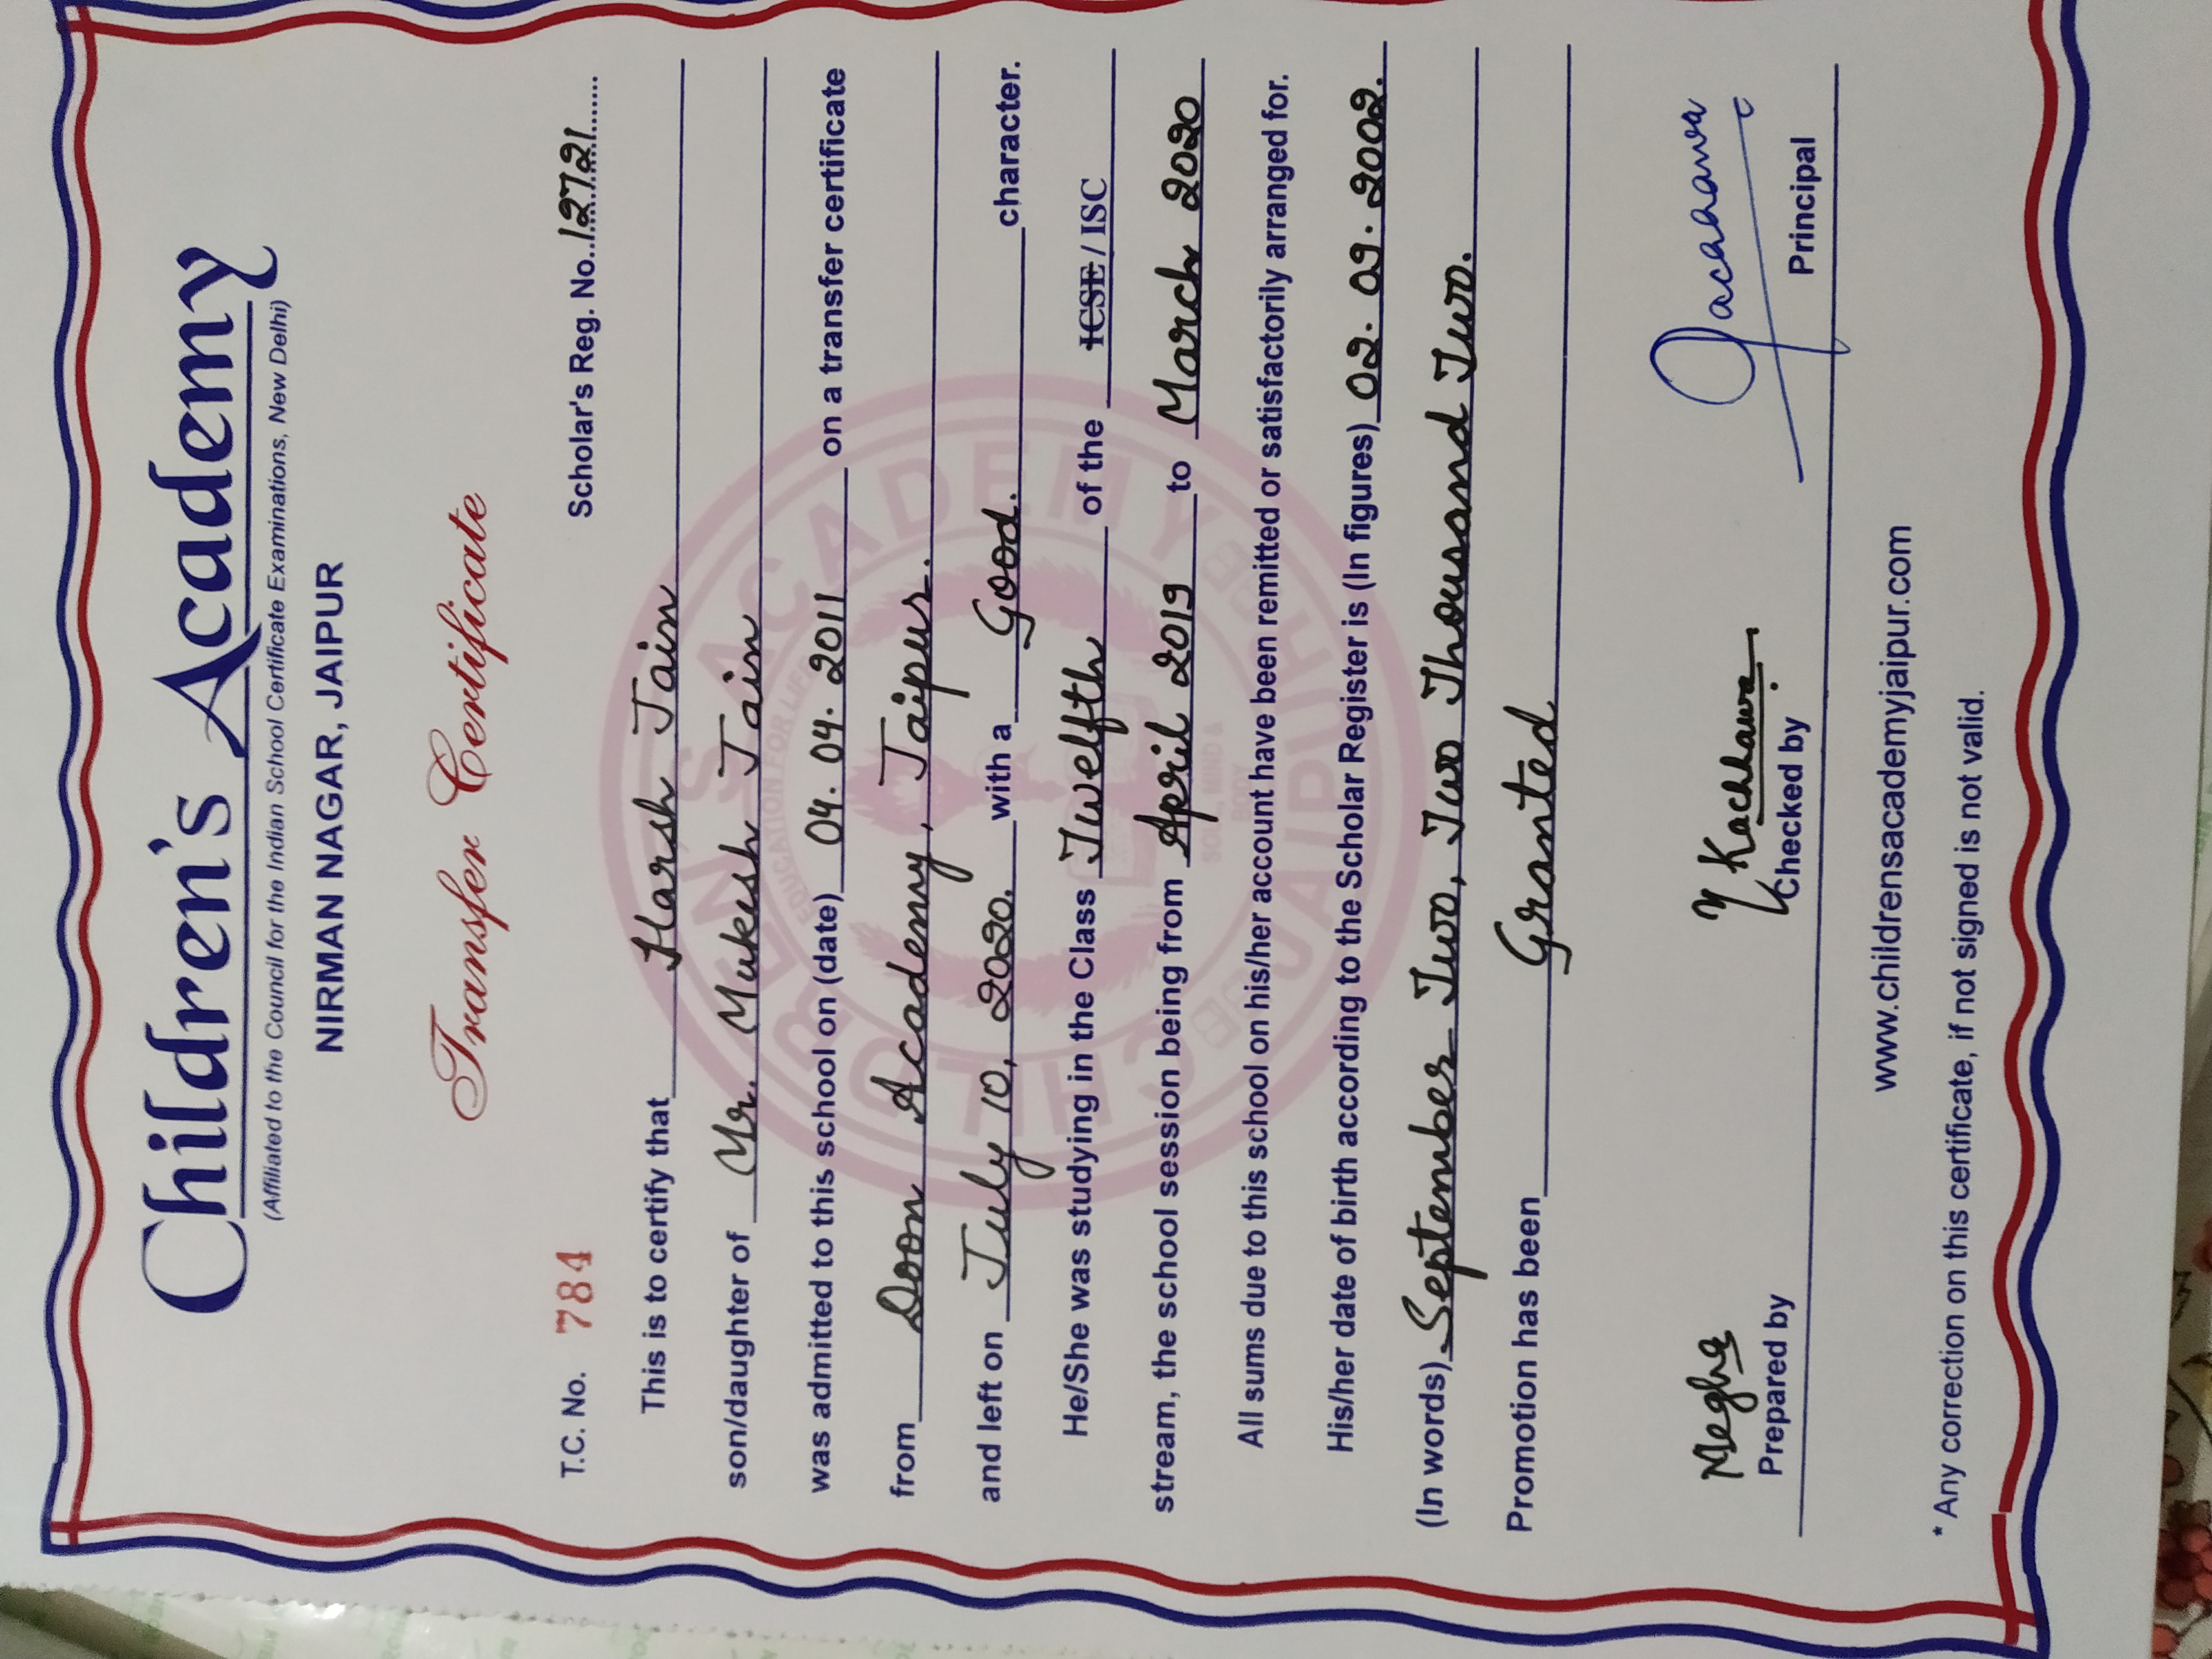 Children's Academy
(Affiliated to the Council for the Indian School Certificate Examinations, New Delhi)
NIRMAN NAGAR, JAIPUR
Transfer Certificate
T.C. No. 784 Scholar's Reg. No. 12721
This is to certify that Harsh Jain
son/daughter of Mr. Mukesh Jain
was admitted to this school on (date) 04. 04. 2011 on a transfer certificate
from Doon Academy, Jaipur.
and left on July 10, 2020. with a Good. character.
He/She was studying in the Class Twelfth of the ICSE / ISC
stream, the school session being from April 2019 to March 2020
All sums due to this school on his/her account have been remitted or satisfactorily arranged for.
His/her date of birth according to the Scholar Register is (In figures) 02. 09. 2002.
(In words) September Two, Two Thousand Two.
Promotion has been Granted
CHILDREN'S ACADEMY
JAIPUR
EDUCATION FOR LIFE
SOUL, MIND &
BODY
Megha Y Kachhawa
Prepared by Checked by Principal
www.childrensacademyjaipur.com
* Any correction on this certificate, if not signed is not valid.